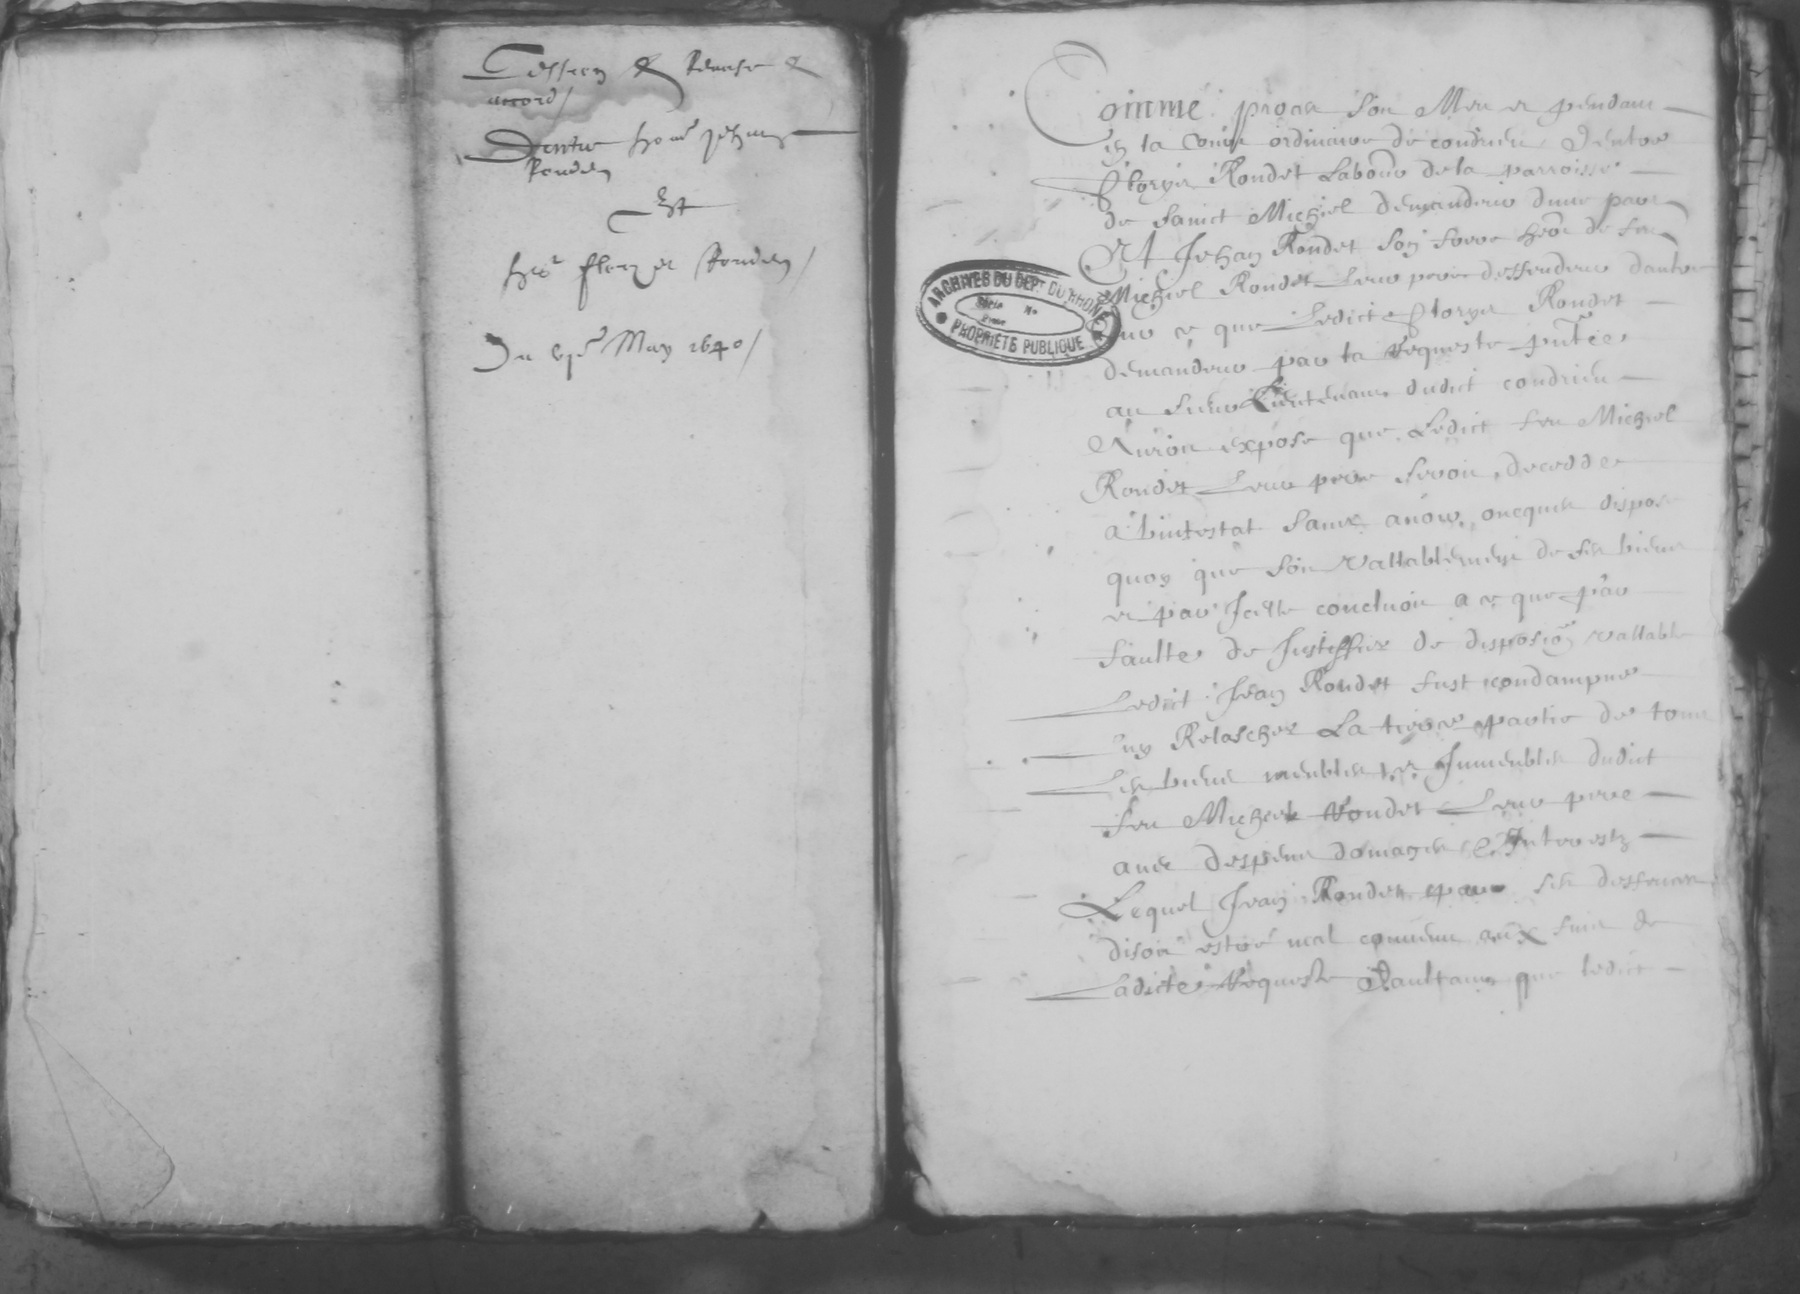 Cession & Remise &
accord /
Dentre hon^e Jehan
Rondet
Et
ho^e Florye Rondet /
Du vj^e May 1640 /
Comme proces soit Meu et pendant
en la Cour ordinaire de condrieu Dentre
Florye Rondet Labour de la parroisse
de Sainct Michiel demanderes dune part
Et Jehan Rondet son frere heor de feu
Michiel Rondet Leur pere deffendeur dautre
sur ce que Ledict Florye Rondet
demandeur par la Requeste pntee
au sieur Lieutenant dudict condrieu
Auroit expose que Ledict feu Michiel
Rondet Leur pere seroit decedde
a bintestat sans avoir oncques dispose
quoy que soit vallablement de ses biens
et par Icelle concluoit a ce que par
faulte de Justiffier de disposion vallable
Ledict Jean Rondet fust condampne
luy Relascher La tierce partie de tous
Les biens meubles et Immeubles dudict
feu Michiel Rondet Leur pere
avec despens domages & Interestz
Lequel Jean Rondet par ses deffences
disoit estre mal convenu aux fins de
Ladicte Requeste Daultant que ledict
ARCHIVES DU DEPT DU RHONE
Série No
PROPRIÉTÉ PUBLIQUE